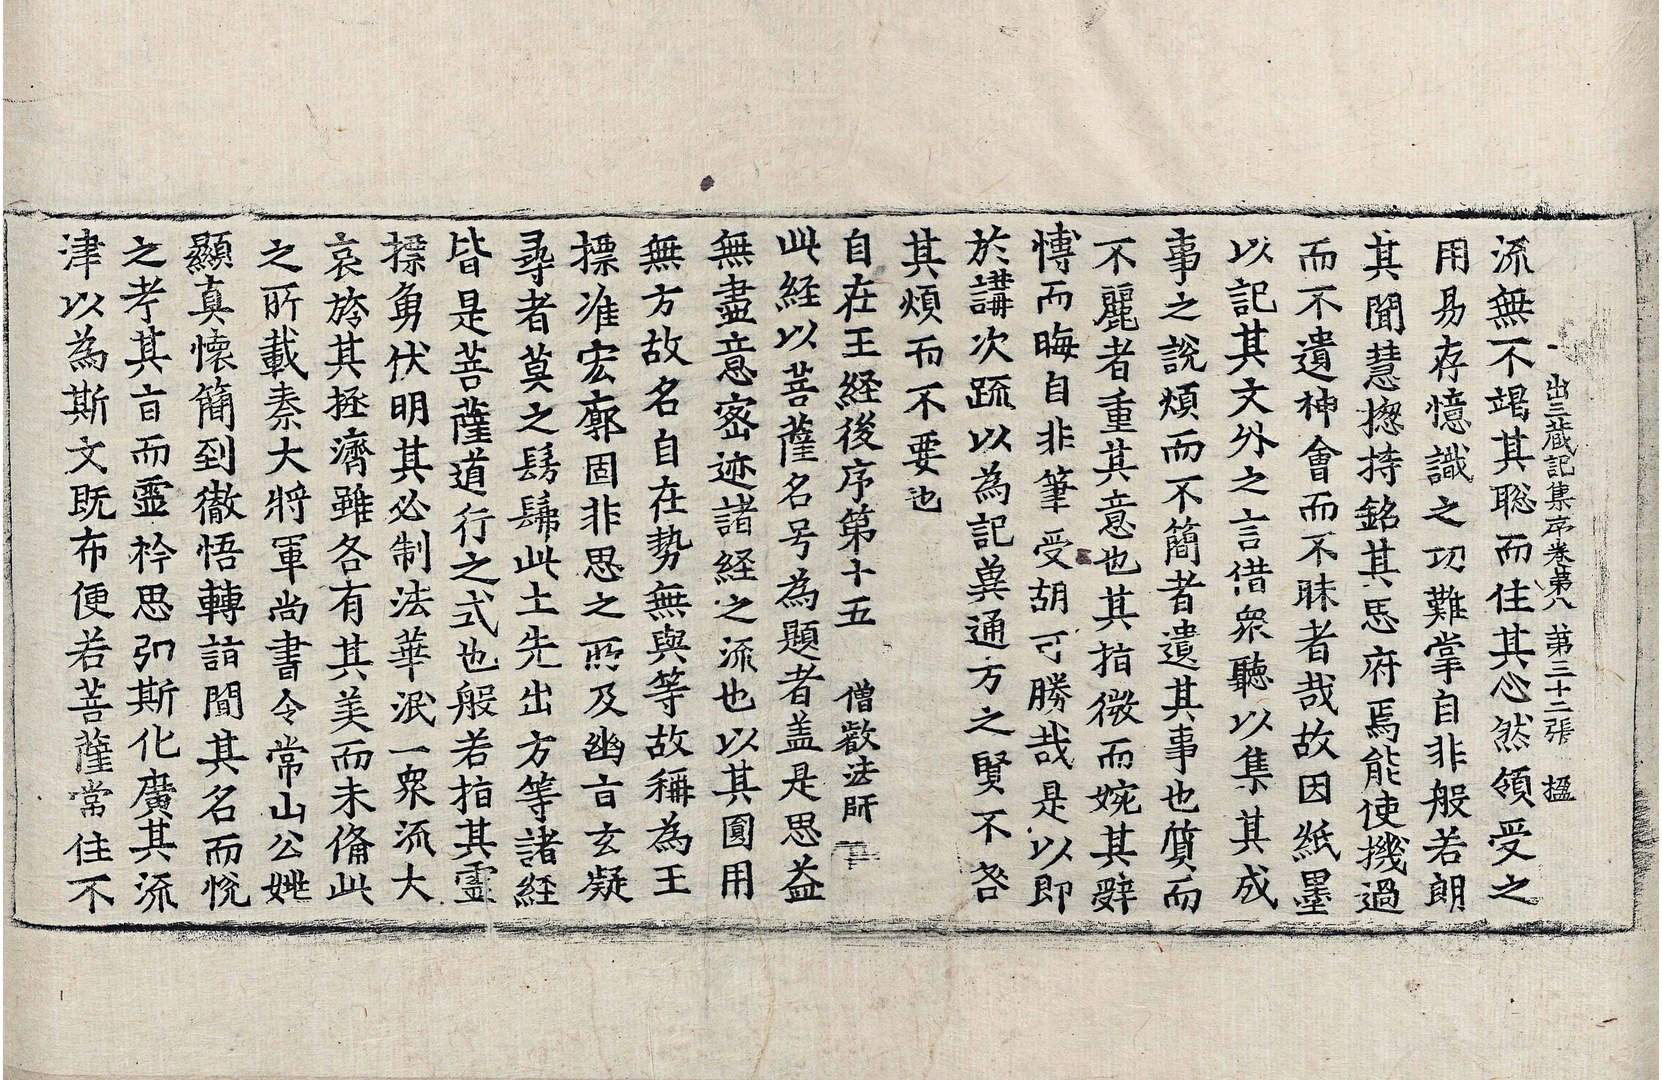 出三藏記集序卷第八　第三十二張　榲
流無不竭其聡而住其心然領受之
用易存憶識之功難掌自非般若朗
其聞慧揔持銘其思府焉能使機過
而不遺神會而不昧者哉故因紙墨
以記其文外之言借衆聽以集其成
事之說煩而不簡者遺其事也質而
不麗者重其意也其指微而婉其辭
愽而晦自非筆受胡可勝哉是以即
於講次䟽以為記兾通方之賢不咎
其煩而不要也
自在王経後序第十五　僧叡法師
此経以菩薩名号為題者盖是思益
無盡意密迹諸経之流也以其圓用
無方故名自在勢無與等故稱為王
摽准宏廓固非思之所及幽旨玄凝
尋者莫之髣髴此土先出方等諸経
皆是菩薩道行之式也般若指其靈
摽勇伏明其必制法華泯一衆流大
哀旍其拯濟雖各有其美而未俻此
之所載秦大將軍尚書令常山公姚
顯真懐簡到徹悟轉詣聞其名而恱
之考其旨而靈衿思弘斯化廣其流
津以為斯文既布便若菩薩常住不